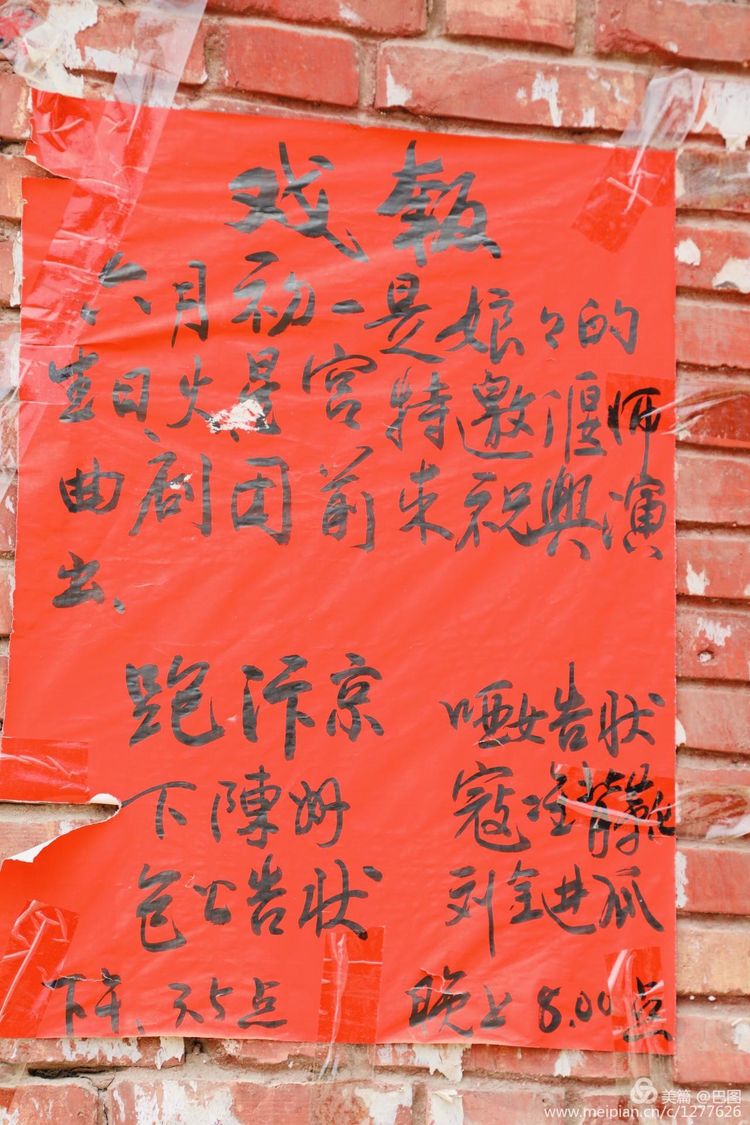 戏报
六月初一是娘々的
生日火星宫特邀偃师
曲剧团前来祝兴演
出、
跑汴京 哑女告状
下陳州 寇准背靴
包公告状 刘全进瓜
下午、3.5点 晚上8.00点
美篇 @巴图
www.meipian.cn/c/1277626